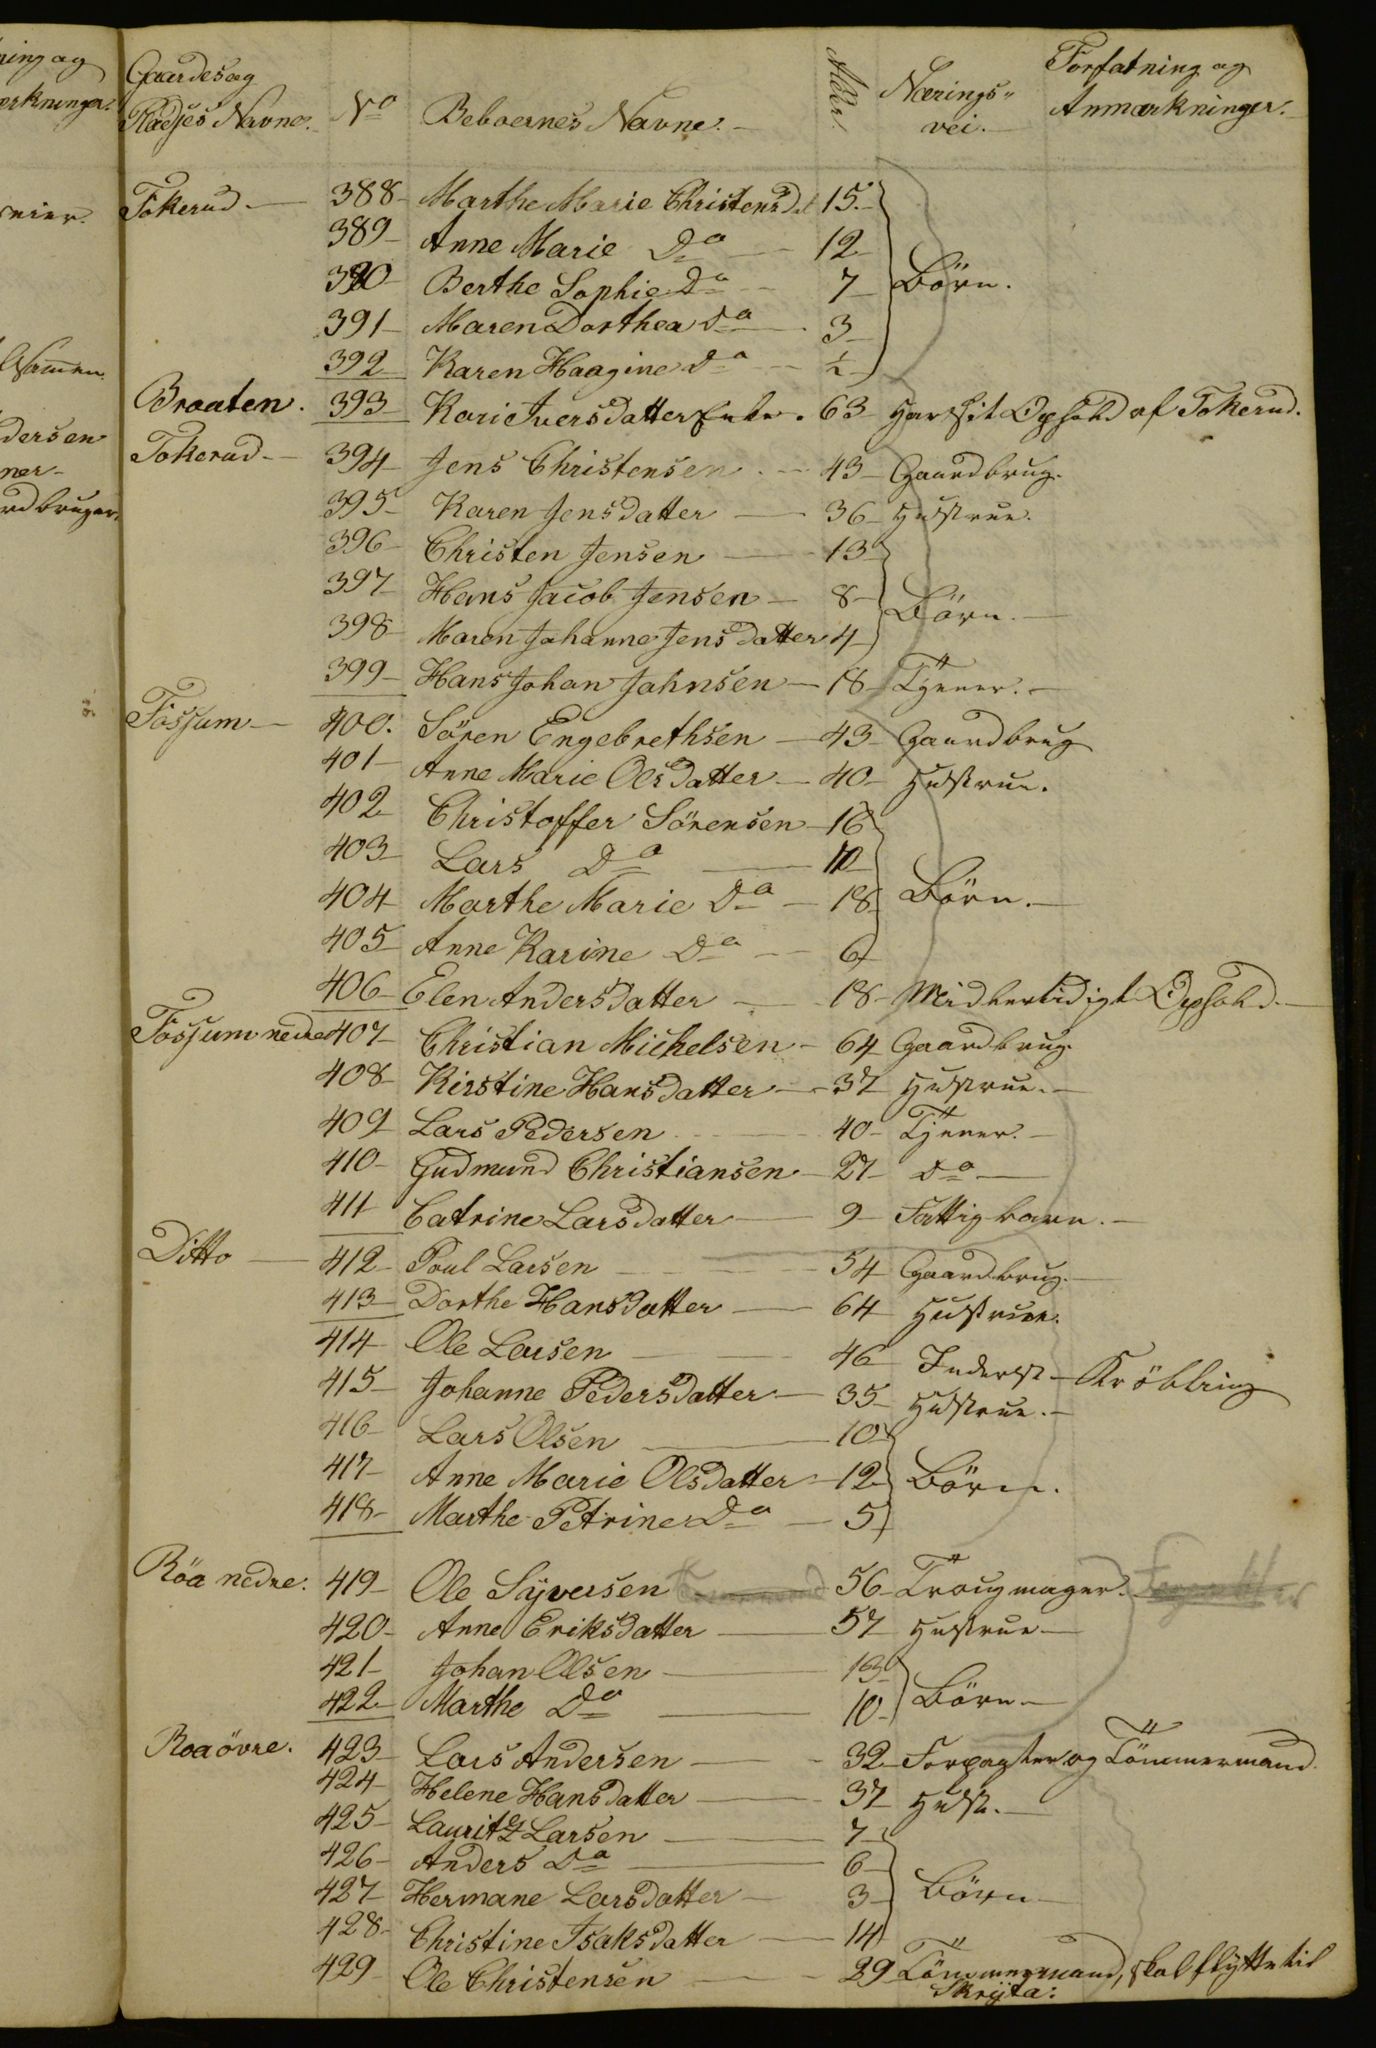 ning og
ærkninger.
Gaardes og
Pladses Navne.
No
Beboernes Navne.
Alder.
Nærings-
vei.
Forfatning og
Anmærkninger.
Tokerud - 388 - Marthe Marie Christensd. 15.
389 - Anne Marie Do - 12
390 - Berthe Sophie Do - 7 Børn.
391 - Maren Dorthea Do - 3
392 Karen Haagine Do - ½
Braaten. 393 - Kari Iversdatter Enke. 63 har sit Ophold af Tokerud.
Tokerud - 394 Jens Christensen - 43 - Gaardbrug.
395 - Karen Jensdatter - 36 - Hustrue.
396 - Christen Jensen - 13
397 - Hans Jacob Jensen - 8 - Børn.
398 - Maren Johanne Jensdatter 4
399 - Hans Johan Johnsen - 18 - Tjener.
Fossum - 400. Sören Engebrethsen - 43 - Gaardbrug
401 - Anne Marie Olsdatter - 40 - Hustrue.
402 Christoffer Sörensen - 16
403 - Lars Do - 10
404 Marthe Marie Do - 18 Børn.
405 - Anne Karine Do - 6
406 - Elen Andersdatter - 18 - Midlertidigt Ophold.
Fossum nedre 407 - Christian Michelsen - 64 Gaardbrug.
408 - Kirstine Hansdatter - 37 Hustrue.
409 Lars Pedersen - 40 - Tjener.
410 - Gudmund Christiansen - 27 - Do
411 Catrine Larsdatter - 9 - Fattigbarn.
Ditto - 412 - Poul Larsen - 54 Gaardbrug.
413 - Dorthe Hansdatter - 64 Hustrue.
414 - Ole Larsen - 46 Inderst - Kröbling
415 - Johanne Pedersdatter - 35 - Hustrue.
416 - Lars Olsen - 10
417 - Anne Marie Olsdatter - 12 Børn.
418 - Marthe Petrine Do - 5
Röa nedre. 419 - Ole Syversen - 56 - Trougmager.
420 - Anne Eriksdatter - 57 Hustrue
421 - Johan Olsen - 13
422 - Marthe Do - 10 - Børn
Roa övre. 423 - Lars Andersen - 32 - Forpagter og Tömmermand.
424 - Helene Hansdatter - 37 Hust.
425 - Lauritz Larsen - 7
426 - Anders Do - 6
427 - Hermane Larsdatter - 3 Børn
428 - Christine Isaksdatter - 14
429 - Ole Christensen - 29 Tömmermand, skal flytte til
Skryta.
dersen
ner -
rdbruger.